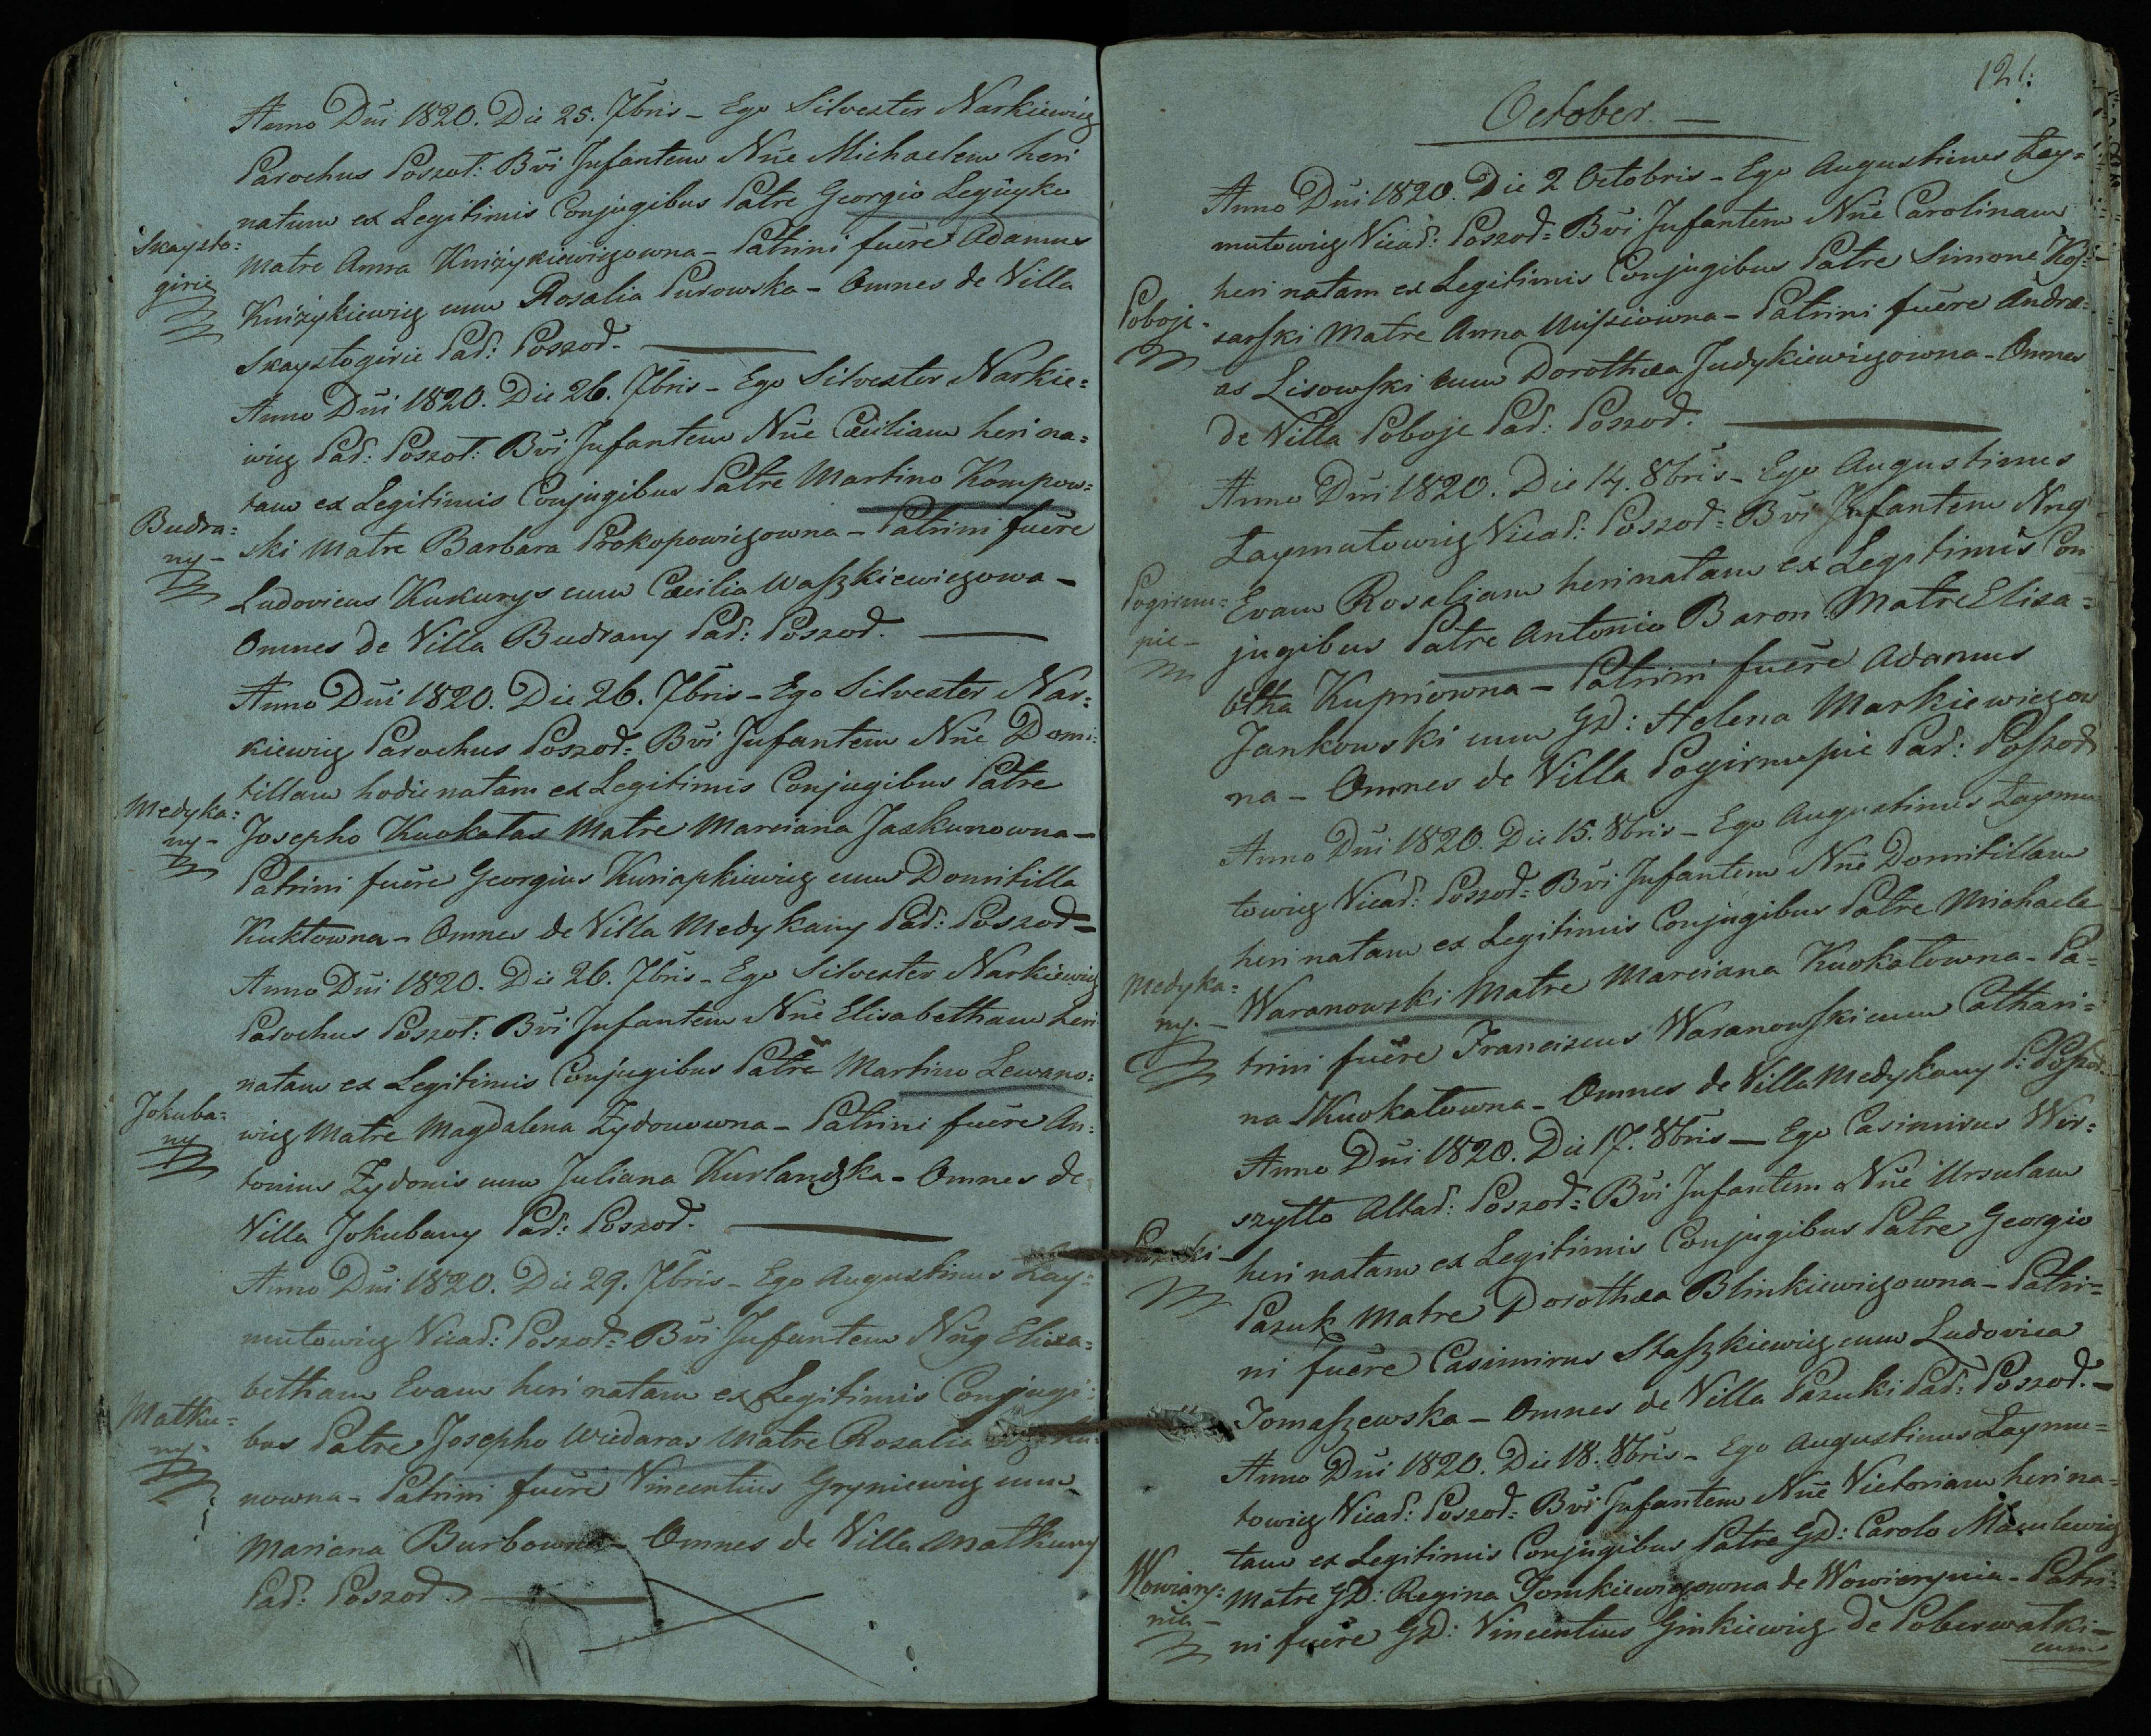 Anno Dni 1820. Die 25. 7bris - Ego Silvester Narkiewicz
Parochus Poszol: Bvi Infantem Nne Michaelem heri
natum ex Legitimis Conjugibus Patre Georgio Legiyko
Skaysto=
girie
Matre Anna Kniżykiewiczowna - Patrini fuere Adamus
Kniżykiewicz cum Rosalia Purowska - Omnes de Villa
Skaystogirie Par: Poszol.
Anno Dni 1820. Die 26. 7bris - Ego Silvester Narkie=
wicz Par: Poszol: Bvi Infantem Nne Cæciliam heri na=
tam ex Legitimis Conjugibus Patre Martino Kompow=
Budra=
ny -
ski Matre Barbara Prokopowiczowna - Patrini fuere
Ludovicus Kukurys cum Cæcilia Waszkiewiczowa -
Omnes de Villa Budrany Par: Poszol.
Anno Dni 1820. Die 26. 7bris - Ego Silvester Nar=
kiewicz Parochus Poszol: Bvi Infantem Nne Domi=
tillam hodie natam ex Legitimis Conjugibus Patre
Medyka=
ny -
Josepho Kuokatas Matre Marciana Jaskunowna -
Patrini fuere Georgius Kuriapkiewicz cum Domitilla
Kuktowna - Omnes de Villa Medykany Par: Poszol=
Anno Dni 1820. Die 26. 7bris - Ego Silvester Narkiewicz
Parochus Poszol: Bvi Infantem Nne Elisabetham heri
natam ex Legitimis Conjugibus Patre Martino Lewano=
Jokuba=
ny
wicz Matre Magdalena Zydonowna - Patrini fuere An=
tonius Zydonis cum Juliana Kurlandzka - Omnes de
Villa Jokubany Par: Poszol.
Anno Dni 1820. Die 29. 7bris - Ego Augustinus Zay=
mutowicz Vicar: Poszol: Bvi Infantem Nng Elisa=
betham Evam heri natam ex Legitimis Conjugi=
Matku=
ny -
bus Patre Josepho Wiedaras Matre Rosalia
nowna - Patrini fuere Vincentius Gryniewicz cum
Mariana Burbowna - Omnes de Villa Matkuny
Par: Poszol.
121.
October. -
Anno Dni 1820. Die 2 Octobris - Ego Augustinus Zay=
mutowicz Vicar: Poszol: Bvi Infantem Nne Carolinam
heri natam ex Legitimis Conjugibus Patre Simone Ko=
Poboje -
sarski Matre Anna Misiowna - Patrini fuere Andre=
as Lisowski cum Dorothea Judykiewiczowna - Omnes
de Villa Poboje Par: Poszol.
Anno Dni 1820. Die 14. 8bris - Ego Augustinus
Zaymutowicz Vicar: Poszol: Bvi Infantem Nng
Pogirnu=
pie -
Evam Rosaliam heri natam ex Legitimis Con
jugibus Patre Antonio Baron Matre Elisa=
betha Kupriowna - Patrini fuere Adamus
Jankowski cum GD: Helena Markiewiczow
na - Omnes de Villa Pogirnupie Par: Poszol
Anno Dni 1820. Die 15. 8bris - Ego Augustinus Zaymu
towicz Vicar: Poszol: Bvi Infantem Nne Domitillam
heri natam ex Legitimis Conjugibus Patre Michaele
Medyka=
ny. -
Waranowski Matre Marciana Kuokatowna - Pa=
trini fuere Franciscus Waranowski cum Cathari=
na Kuokatowna - Omnes de Villa Medykany P: Poszol.
Anno Dni 1820. Die 17. 8bris - Ego Casimirus Wir=
szytto Altar: Poszol: Bvi Infantem Nne Ursulam
Pazuki -
heri natam ex Legitimis Conjugibus Patre Georgio
Pazuk Matre Dorothea Blinkiewiczowna - Patri=
ni fuere Casimirus Staszkiewicz cum Ludovica
Tomaszewska - Omnes de Villa Pazuki Par: Poszol. -
Anno Dni 1820. Die 18. 8bris - Ego Augustinus Zaymu=
towicz Vicar: Poszol: Bvi Infantem Nne Victoriam heri na=
tam ex Legitimis Conjugibus Patre GD: Carolo Maculewicz
Wowiery=
nia -
Matre GD: Regina Tomkiewiczowna de Wowierynia - Patri=
ni fuere GD: Vincentius Ginkiewicz de Poberwałki -
cum